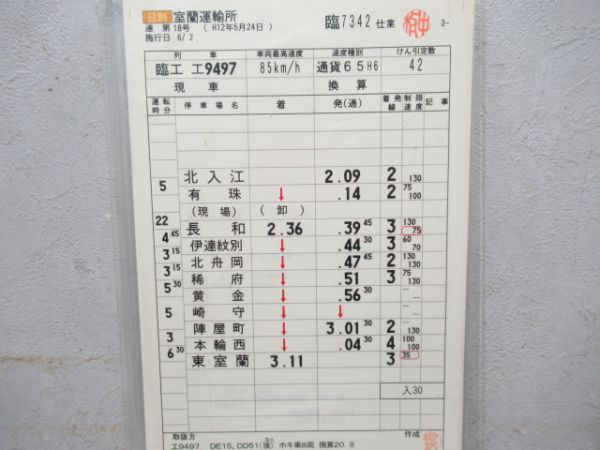 日別 室蘭運輸所 臨7342仕業 3-
達 第18号 ( H12年5月24日 )
施行日 6/2
列車 車両最高速度 速度種別 けん引定数
臨工 工9497 85km/h 通貨65H6 42
現車 換算
運転時分 停車場名 着 発(通) 着発線 制限速度 記事
北入江 2.09 2 130
5
有珠 ↓ .14 2 75 100
(現場) (卸)
22
長和 2.36 .39 45 3 130 75
4 45
伊達紋別 ↓ .44 30 3 60 70
3 15
北舟岡 ↓ .47 45 2 130
3 15
稀府 ↓ .51 3 75 130
5 30
黄金 ↓ .56 30 -- --
崎守 ↓ ↓ -- --
5
陣屋町 ↓ 3.01 30 2 130
3
本輪西 ↓ .04 30 4 100 100
6 30
東室蘭 3.11 3 35
入30
取扱方 作成
工9497 DE15,DD51(後) ホキ車8両 換算20.8